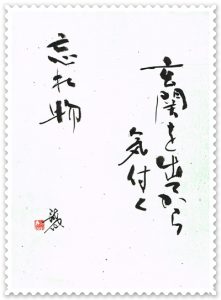 玄関を出てから
気付く
忘れ物